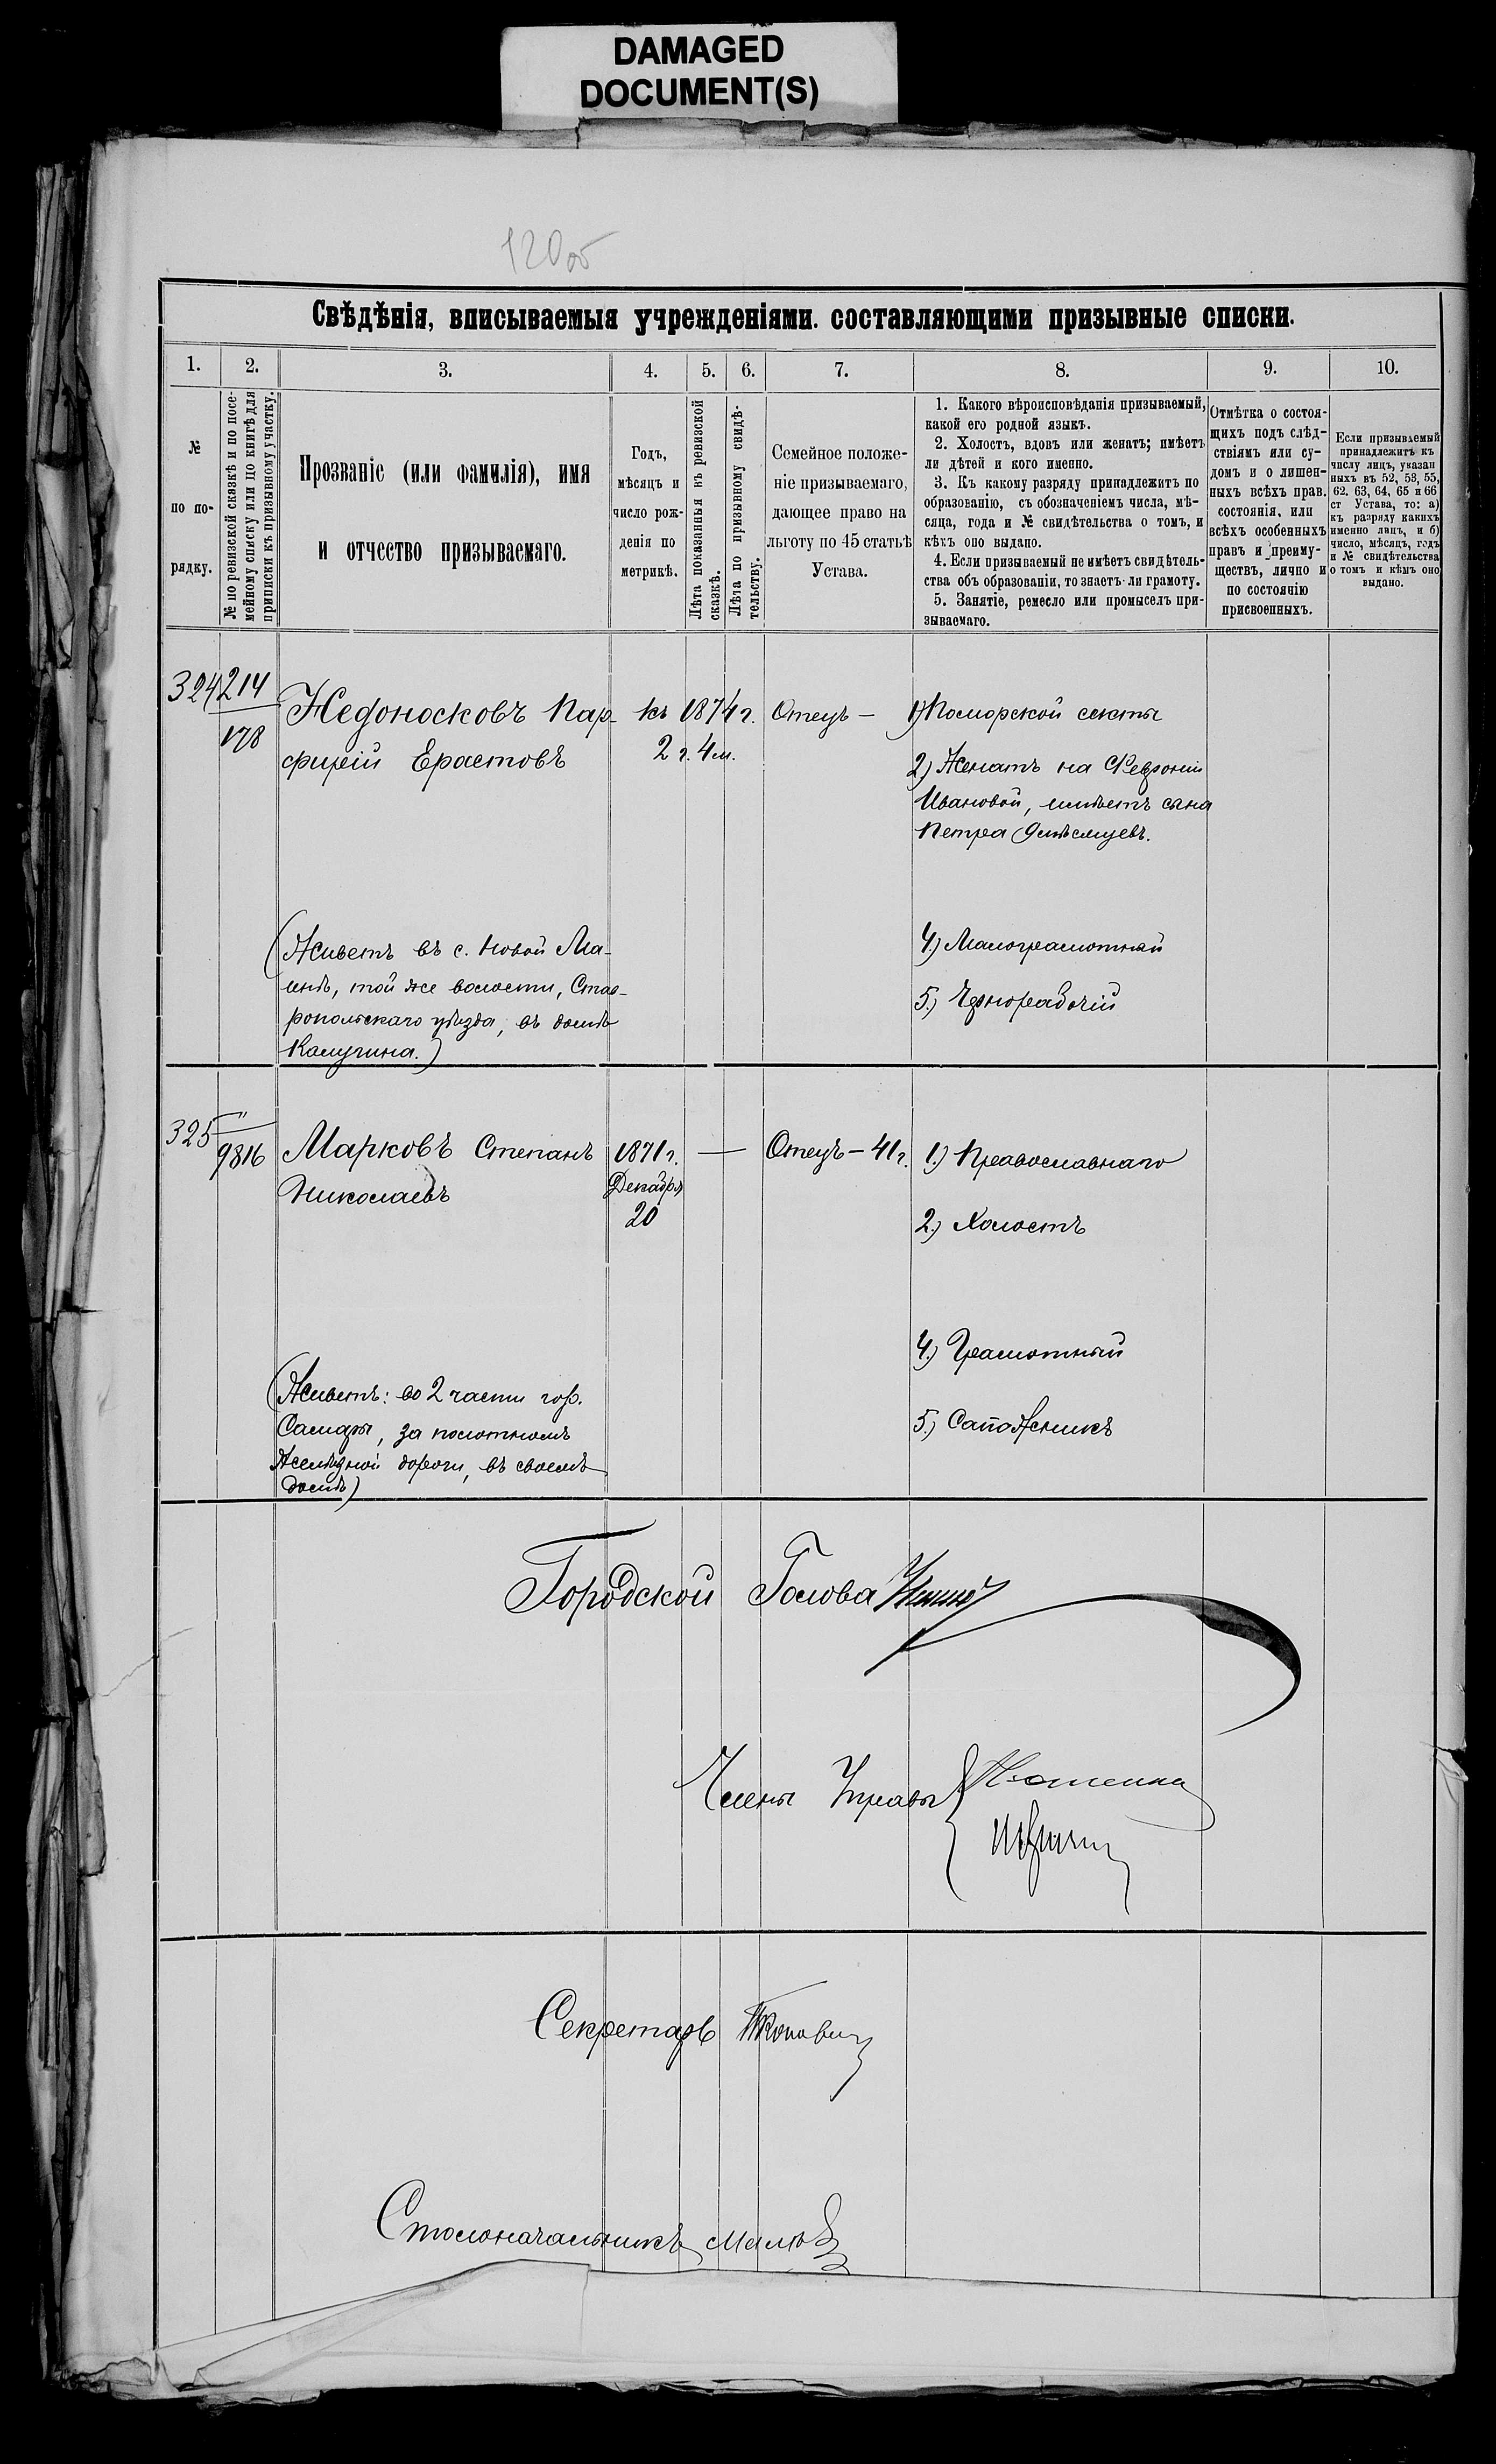 DAMAGED
DOCUMENT(S)
120об
Свѣдѣнія, вписываемыя учрежденіями. составляющими призывные списки.
1.
2.
3.
4.
5.
6.
7.
8.
9.
10.
№
по по-
рядку.
№ по ревизской сказкѣ и по посе-
мейному списку или по книгѣ для
приписки къ призывному участку.
Прозваніе (или фамилія), имя
и отчество призываемаго.
Годъ,
мѣсяцъ и
число рож-
денія по
метрикѣ.
Лѣта показанныя въ ревизской
сказкѣ.
Лѣта по призывному свидѣ-
тельству.
Семейное положе-
ніе призываемаго,
дающее право на
льготу по 45 статьѣ
Устава.
1. Какого вѣроисповѣданія призываемый,
какой его родной языкъ.
2. Холостъ, вдовъ или женатъ; имѣетъ
ли дѣтей и кого именно.
3. Къ какому разряду принадлежитъ по
образованію, съ обозначеніемъ числа, мѣ-
сяца, года и № свидѣтельства о томъ, и
кѣхъ оно выдано.
4. Если призываемый не имѣетъ свидѣтель-
ства объ образованіи, то знаетъ-ли грамоту.
5. Занятіе, ремесло или промыселъ при-
зываемаго.
Отмѣтка о состоя-
щихъ подъ слѣд-
ствіямъ или су-
домъ и о лишен-
ныхъ всѣхъ прав.
состоянія, или
всѣхъ особенныхъ
правъ и преиму-
ществъ, лично и
по состоянію
присвоенныхъ.
Если призываемый
принадлежитъ къ
числу лицъ, указан
ныхъ въ 52, 53, 55,
62. 63, 64, 65 и 66
ст Устава, то: а)
къ разряду какихъ
именно лицъ, и б)
число, мѣсяцъ, годъ
и № свидѣтельства
о томъ и кѣмъ оно
выдано.
324
214
178
Недоносковъ Пар-
фирій Ерастовъ
къ 1874 г.
2 г. 4 м.
Отецъ —
1) Поморской секты
2) Женатъ на Февроніи
Ивановой, имѣетъ сына
Петра 9 мѣсяцевъ.
4.) Малограмотный
5.) Чернорабочій
(Живетъ въ с. Новой Ма-
инѣ, той же волости, Став-
ропольскаго уѣзда, въ домѣ
Калугина.)
325
"
9816
Марковъ Степанъ
Николаевъ
1871 г.
Декабря
20
—
Отецъ — 41 г.
1.) Православнаго
2.) Холостъ
4.) Грамотный
5.) Сапожникъ
(Живетъ: во 2 части гор.
Самары, за полотномъ
желѣзной дороги, въ своемъ
домѣ)
Городской Голова
Члены Управы
Секретарь
Столоначальникъ